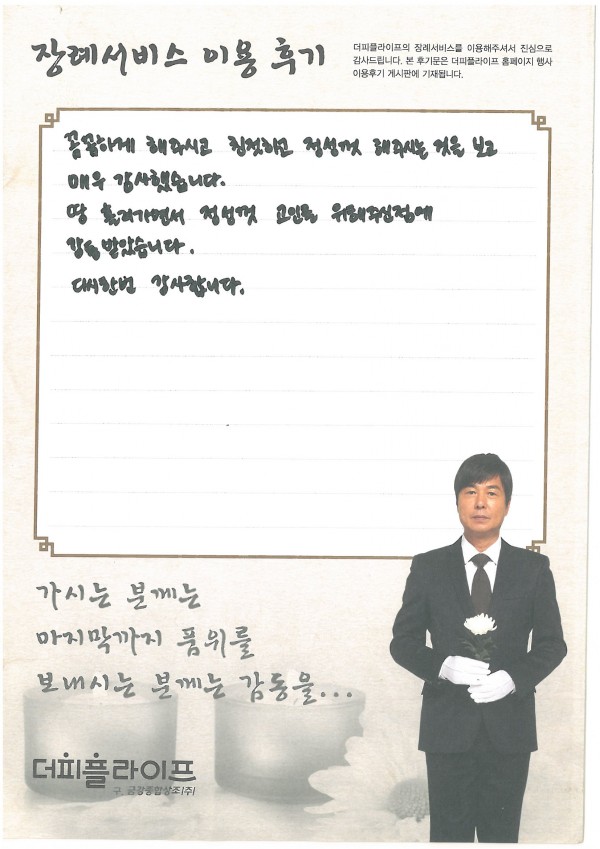 장례서비스 이용 후기
더피플라이프의 장례서비스를 이용해주셔서 진심으로
감사드립니다. 본 후기문은 더피플라이프 홈페이지 행사
이용후기 게시판에 기재됩니다.
꼼꼼하게 해주시고 친절하고 정성껏 해주시는 것을 보고
매우 감사했습니다.
땀 흘려가면서 정성껏 고인을 위해주신점에
감동받았습니다.
다시한번 감사합니다.
가시는 분께는
마지막까지 품위를
보내시는 분께는 감동을...
더피플라이프
구. 금강종합상조(주)